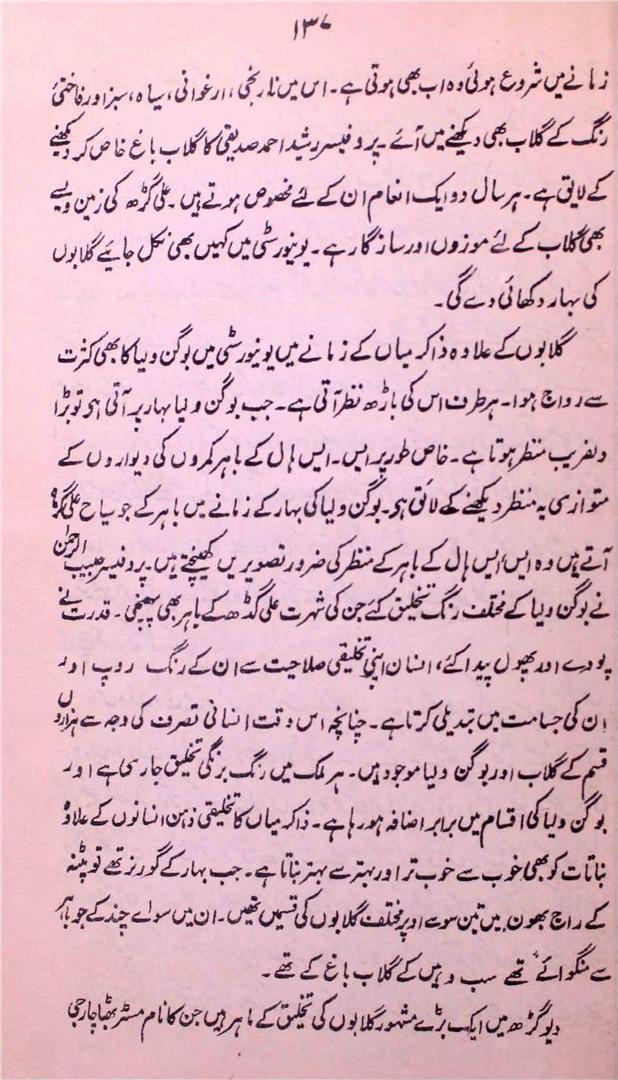 ۱۳۷
زمانے میں شروع ہوئی وہ اب بھی ہوتی ہے۔ اس میں نارنجی، ارغوانی، سیاہ، سبز اور فاختئی
رنگ کے گلاب بھی دیکھنے میں آئے۔ پروفیسر رشید احمد صدیقی کا گلاب باغ خاص کر دیکھنے
کے لایق ہے۔ ہر سال دو ایک انعام ان کے لئے مخصوص ہوتے ہیں۔ علی گڑھ کی زمین ویسے
بھی گلاب کے لئے موزوں اور سازگار ہے۔ یونیورسٹی میں کہیں بھی نکل جائیے گلابوں
کی بہار دکھائی دے گی۔
گلابوں کے علاوہ ذاکر میاں کے زمانے میں یونیورسٹی میں بوگن ولیا کا بھی کثرت
سے رواج ہوا۔ ہر طرف اس کی باڑھ نظر آتی ہے۔ جب بوگن ولیا بہار پر آتی ہی تو بڑا
دلفریب منظر ہوتا ہے۔ خاص طور پر ایس۔ ایس ہال کے باہر کمروں کی دیواروں کے
متوازی یہ منظر دیکھنے کے لائق ہی۔ بوگن ولیا کی بہار کے زمانے میں باہر کے جو سیاح علی گڑھ
آتے ہیں وہ ایس ایس ہال کے باہر کے منظر کی ضرور تصویریں کھینچتے ہیں۔ پروفیسر حبیب الرحمٰن
نے بوگن ولیا کے مختلف رنگ تخلیق کئے جن کی شہرت علی گڈھ کے باہر بھی پہنچی۔ قدرت نے
پودے اور پھول پیدا کئے، انسان اپنی تخلیقی صلاحیت سے ان کے رنگ روپ اور
ان کی جسامت میں تبدیلی کرتا ہے۔ چنانچہ اس وقت انسانی تصرف کی وجہ سے ہزاروں
قسم کے گلاب اور بوگن ولیا موجود ہیں۔ ہر ملک میں رنگ برنگی تخلیق جاری ہے اور
بوگن ولیا کی اقسام میں برابر اضافہ ہو رہا ہے۔ ذاکر میاں کا تخلیقی ذہن انسانوں کے علاوہ
نباتات کو بھی خوب سے خوب تر اور بہتر سے بہتر بناتا ہے۔ جب بہار کے گورنر تھے تو پٹنہ
کے راج بھون میں تین سو سے اوپر مختلف گلابوں کی قسمیں تھیں۔ ان میں سوائے چند کے جو باہر
سے منگوائے تھے سب وہیں کے گلاب باغ کے تھے۔
دیوگڑھ میں ایک بڑے مشہور گلابوں کی تخلیق کے ماہر ہیں جن کا نام مسٹر بھٹاچارجی